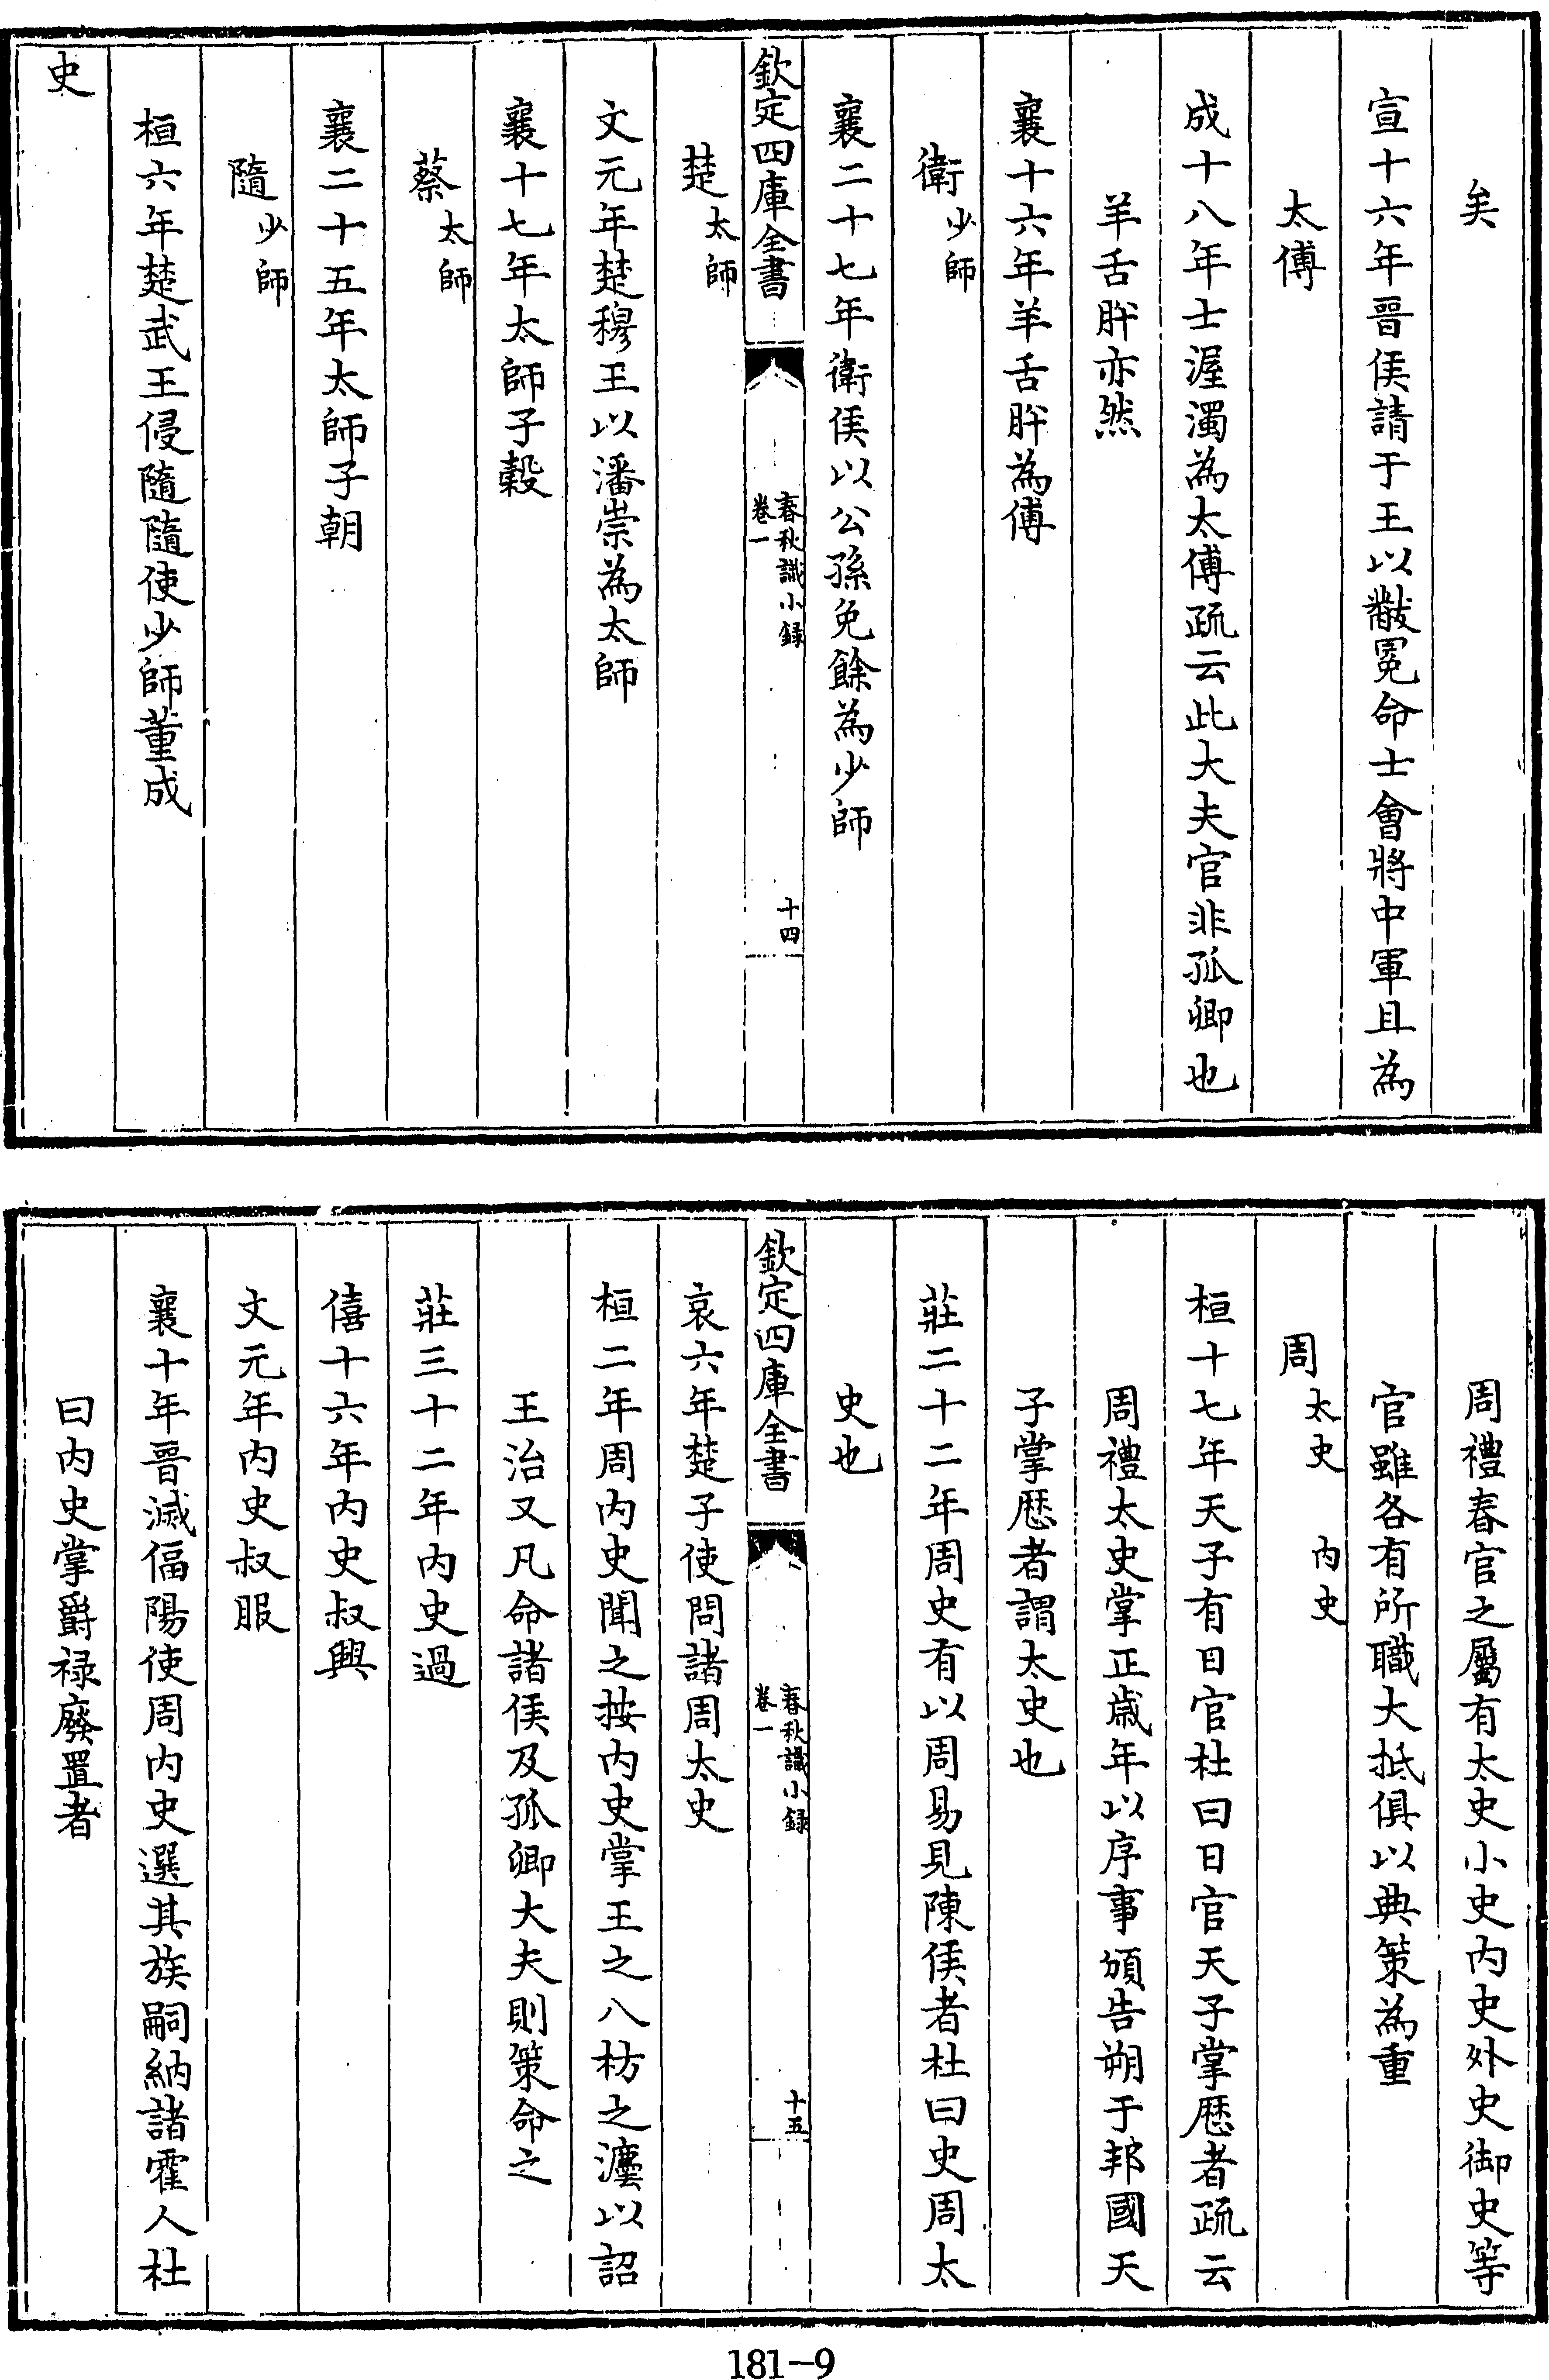 矣
宣十六年晉侯請于王以黻冕命士會將中軍且為
太傅
成十八年士渥濁為太傅疏云此大夫官非孤卿也
羊舌肸亦然
襄十六年羊舌肸為傅
衛少師
襄二十七年衛侯以公孫免餘為少師
欽定四庫全書
春秋識小録
卷一
十四
楚太師
文元年楚穆王以潘崇為太師
襄十七年太師子穀
蔡太師
襄二十五年太師子朝
隨少師
桓六年楚武王侵隨隨使少師董成
史
周禮春官之屬有太史小史内史外史御史等
官雖各有所職大抵俱以典策為重
周太史 内史
桓十七年天子有日官杜曰日官天子掌厯者疏云
周禮太史掌正歲年以序事頒告朔于邦國天
子掌厯者謂太史也
莊二十二年周史有以周易見陳侯者杜曰史周太
史也
欽定四庫全書
春秋識小録
卷一
十五
哀六年楚子使問諸周太史
桓二年周内史聞之按内史掌王之八枋之灋以詔
王治又凡命諸侯及孤卿大夫則策命之
莊三十二年内史過
僖十六年内史叔興
文元年内史叔服
襄十年晉滅偪陽使周内史選其族嗣納諸霍人杜
曰内史掌爵禄廢置者
181-9